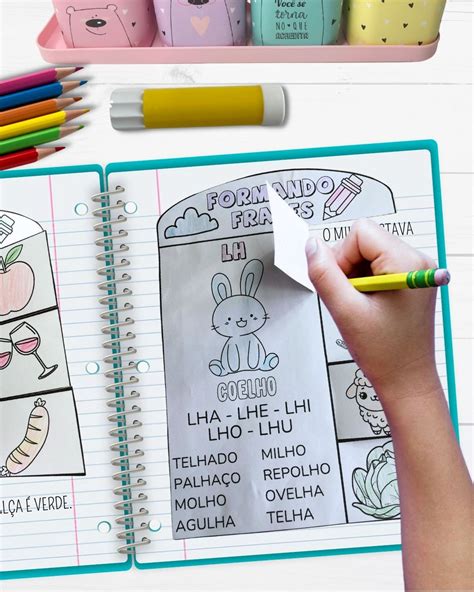 Você se
torna
NO QUE ACREDITA
FORMANDO
FRASES
LH
COELHO
LHA - LHE - LHI
LHO - LHU
TELHADO MILHO
PALHAÇO REPOLHO
MOLHO OVELHA
AGULHA TELHA
O
É VERDE.